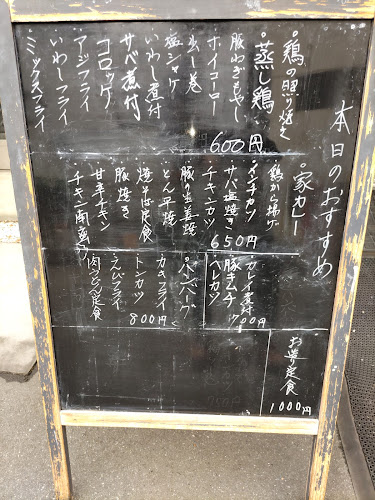 本日のおすすめ
・鶏の照り焼き
・蒸し鶏
豚ねぎもやし
ホイコーロー
塩シャケ
いわし煮付
サバ煮付
コロッケ
アジフライ
いわしフライ
・ミックスフライ
600円
・家カレー
鶏から揚げ
メンチカツ
サバ塩焼き
チキンカツ
豚の生姜焼
とん平焼
焼そば定食
豚焼き
甘辛チキン
チキン南蛮
650円
カレイ煮付
豚キムチ
ヘレカツ
700円
・ハンバーグ
カキフライ
トンカツ
えんびフライ
肉うどん定食
800円
お造り定食
1000円